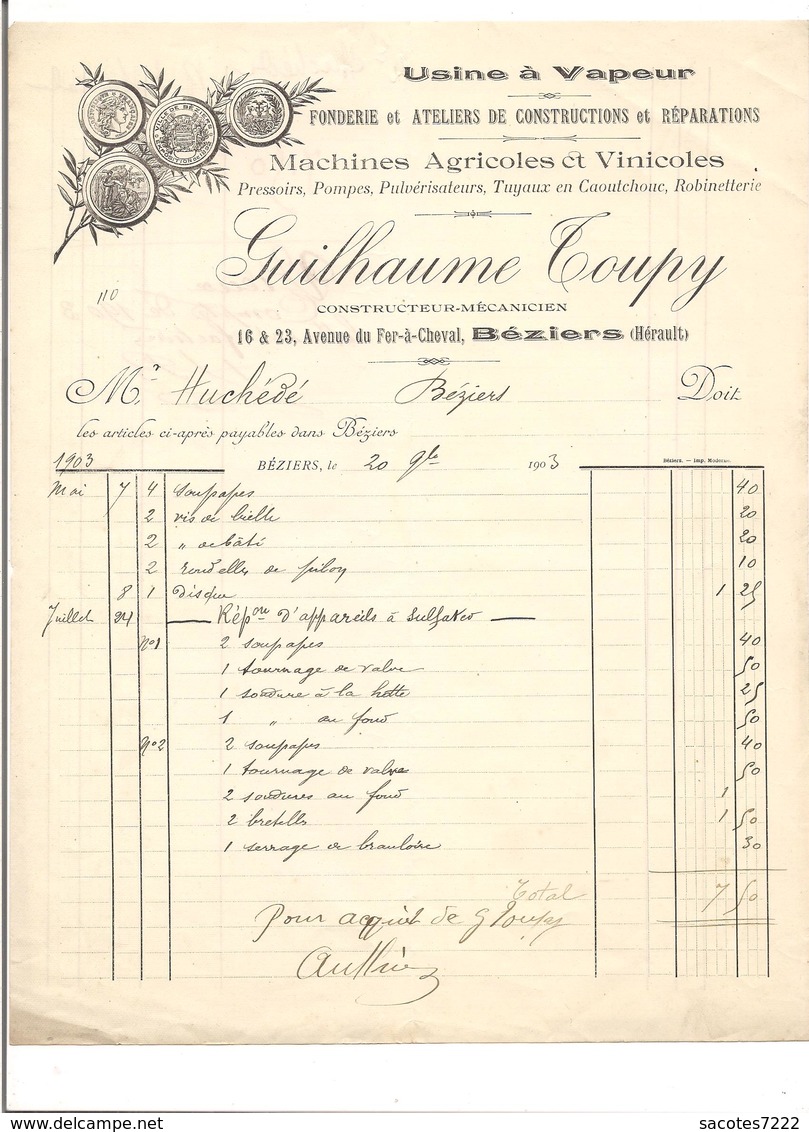 Usine à Vapeur
FONDERIE et ATELIERS DE CONSTRUCTIONS et RÉPARATIONS
Machines Agricoles et Vinicoles
Pressoirs, Pompes, Pulvérisateurs, Tuyaux en Caoutchouc, Robinetterie
Guilhaume Toupy
110
CONSTRUCTEUR-MÉCANICIEN
16 & 23, Avenue du Fer-à-Cheval, Béziers (Hérault)
M.r Huchédé Béziers Doit
les articles ci-après payables dans Béziers
1903 BÉZIERS, le 20 9bre 1903 Béziers. — Imp. Moderne
Mai 7 4 soupapes 40
2 vis de bielle 20
2 „ de bâti 20
2 rondelles de 10
8 1 disque 1 25
Juillet 24 Répon d'appareils à Sulfater
No1 2 soupapes 40
1 tournage de valve 50
1 soudure à la hotte 25
1 „ au fond 50
No2 2 soupapes 40
1 tournage de valves 50
2 soudures au fond 1
2 bretelles 1 50
1 serrage de 30
Total 7 50
Pour acquit de G Toupy
sacotes7222